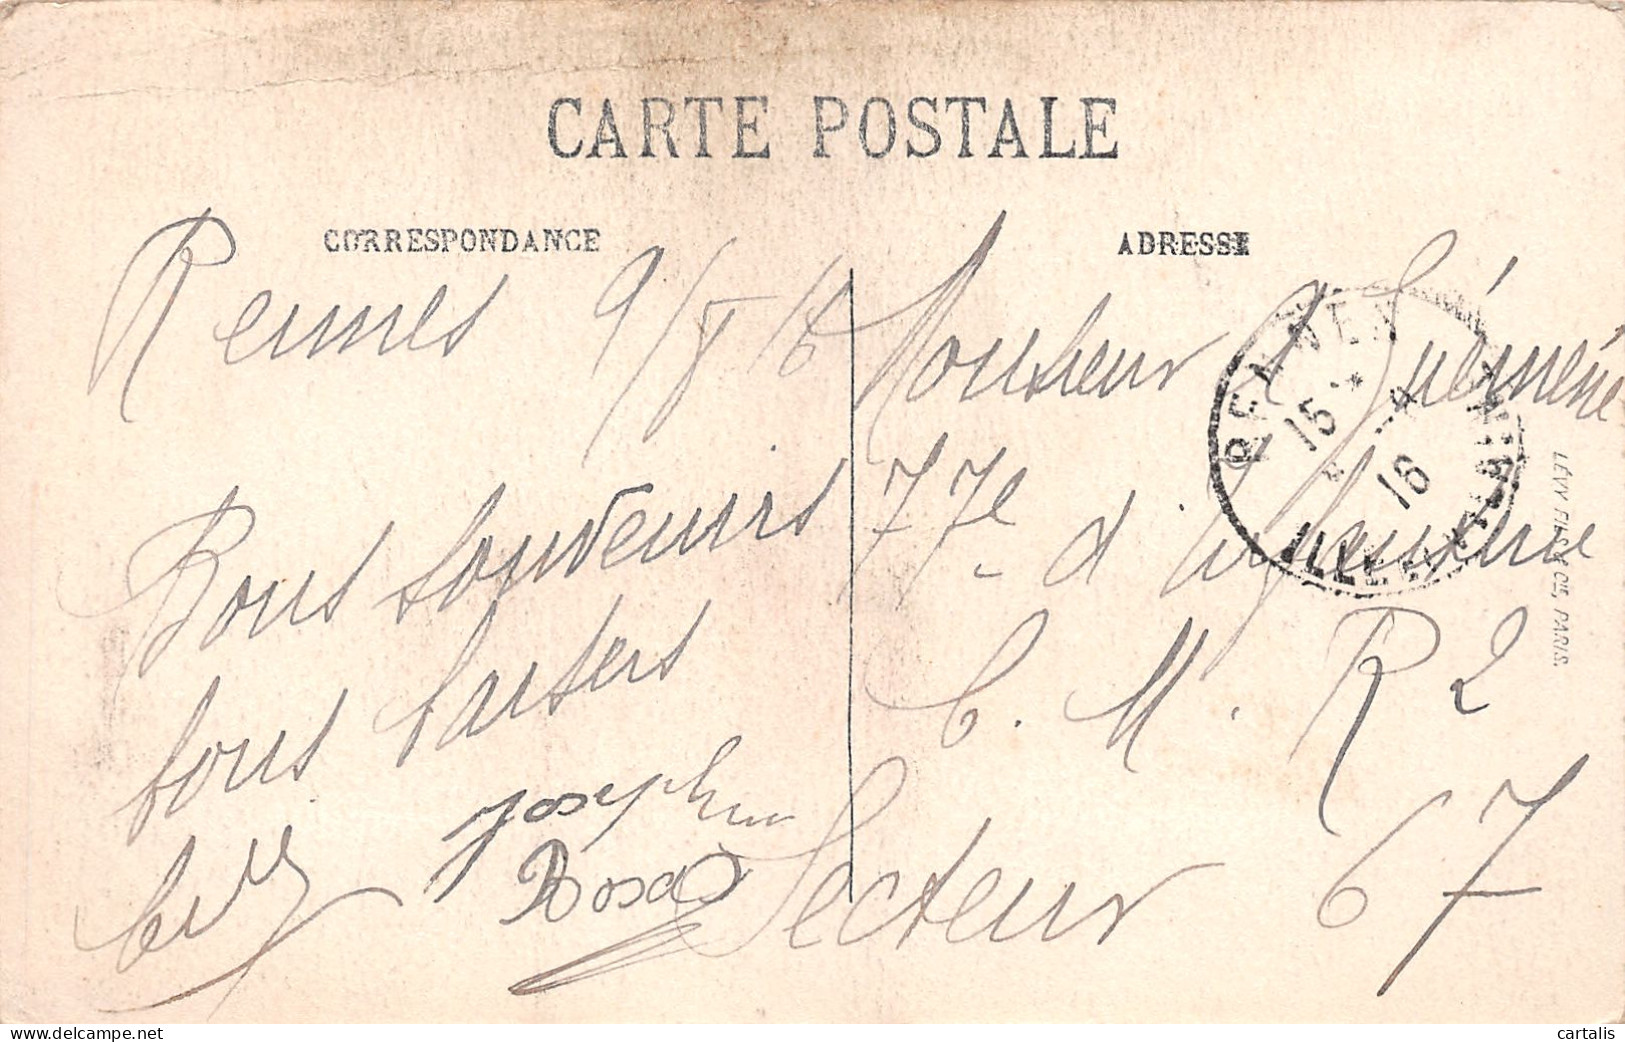 CARTE POSTALE
CORRESPONDANCE
Rennes 9/ /18
Bons souvenirs
bons baisers
Joseph
Rosa
ADRESSE
Monsieur Guéméné
77e d'Infanterie
C. M. R 2
Secteur 67
RENNES
15 * -4
18
ILLE-ET-VILAINE
LÉVY FILS & Cie, PARIS.
delcampe.net
cartalis